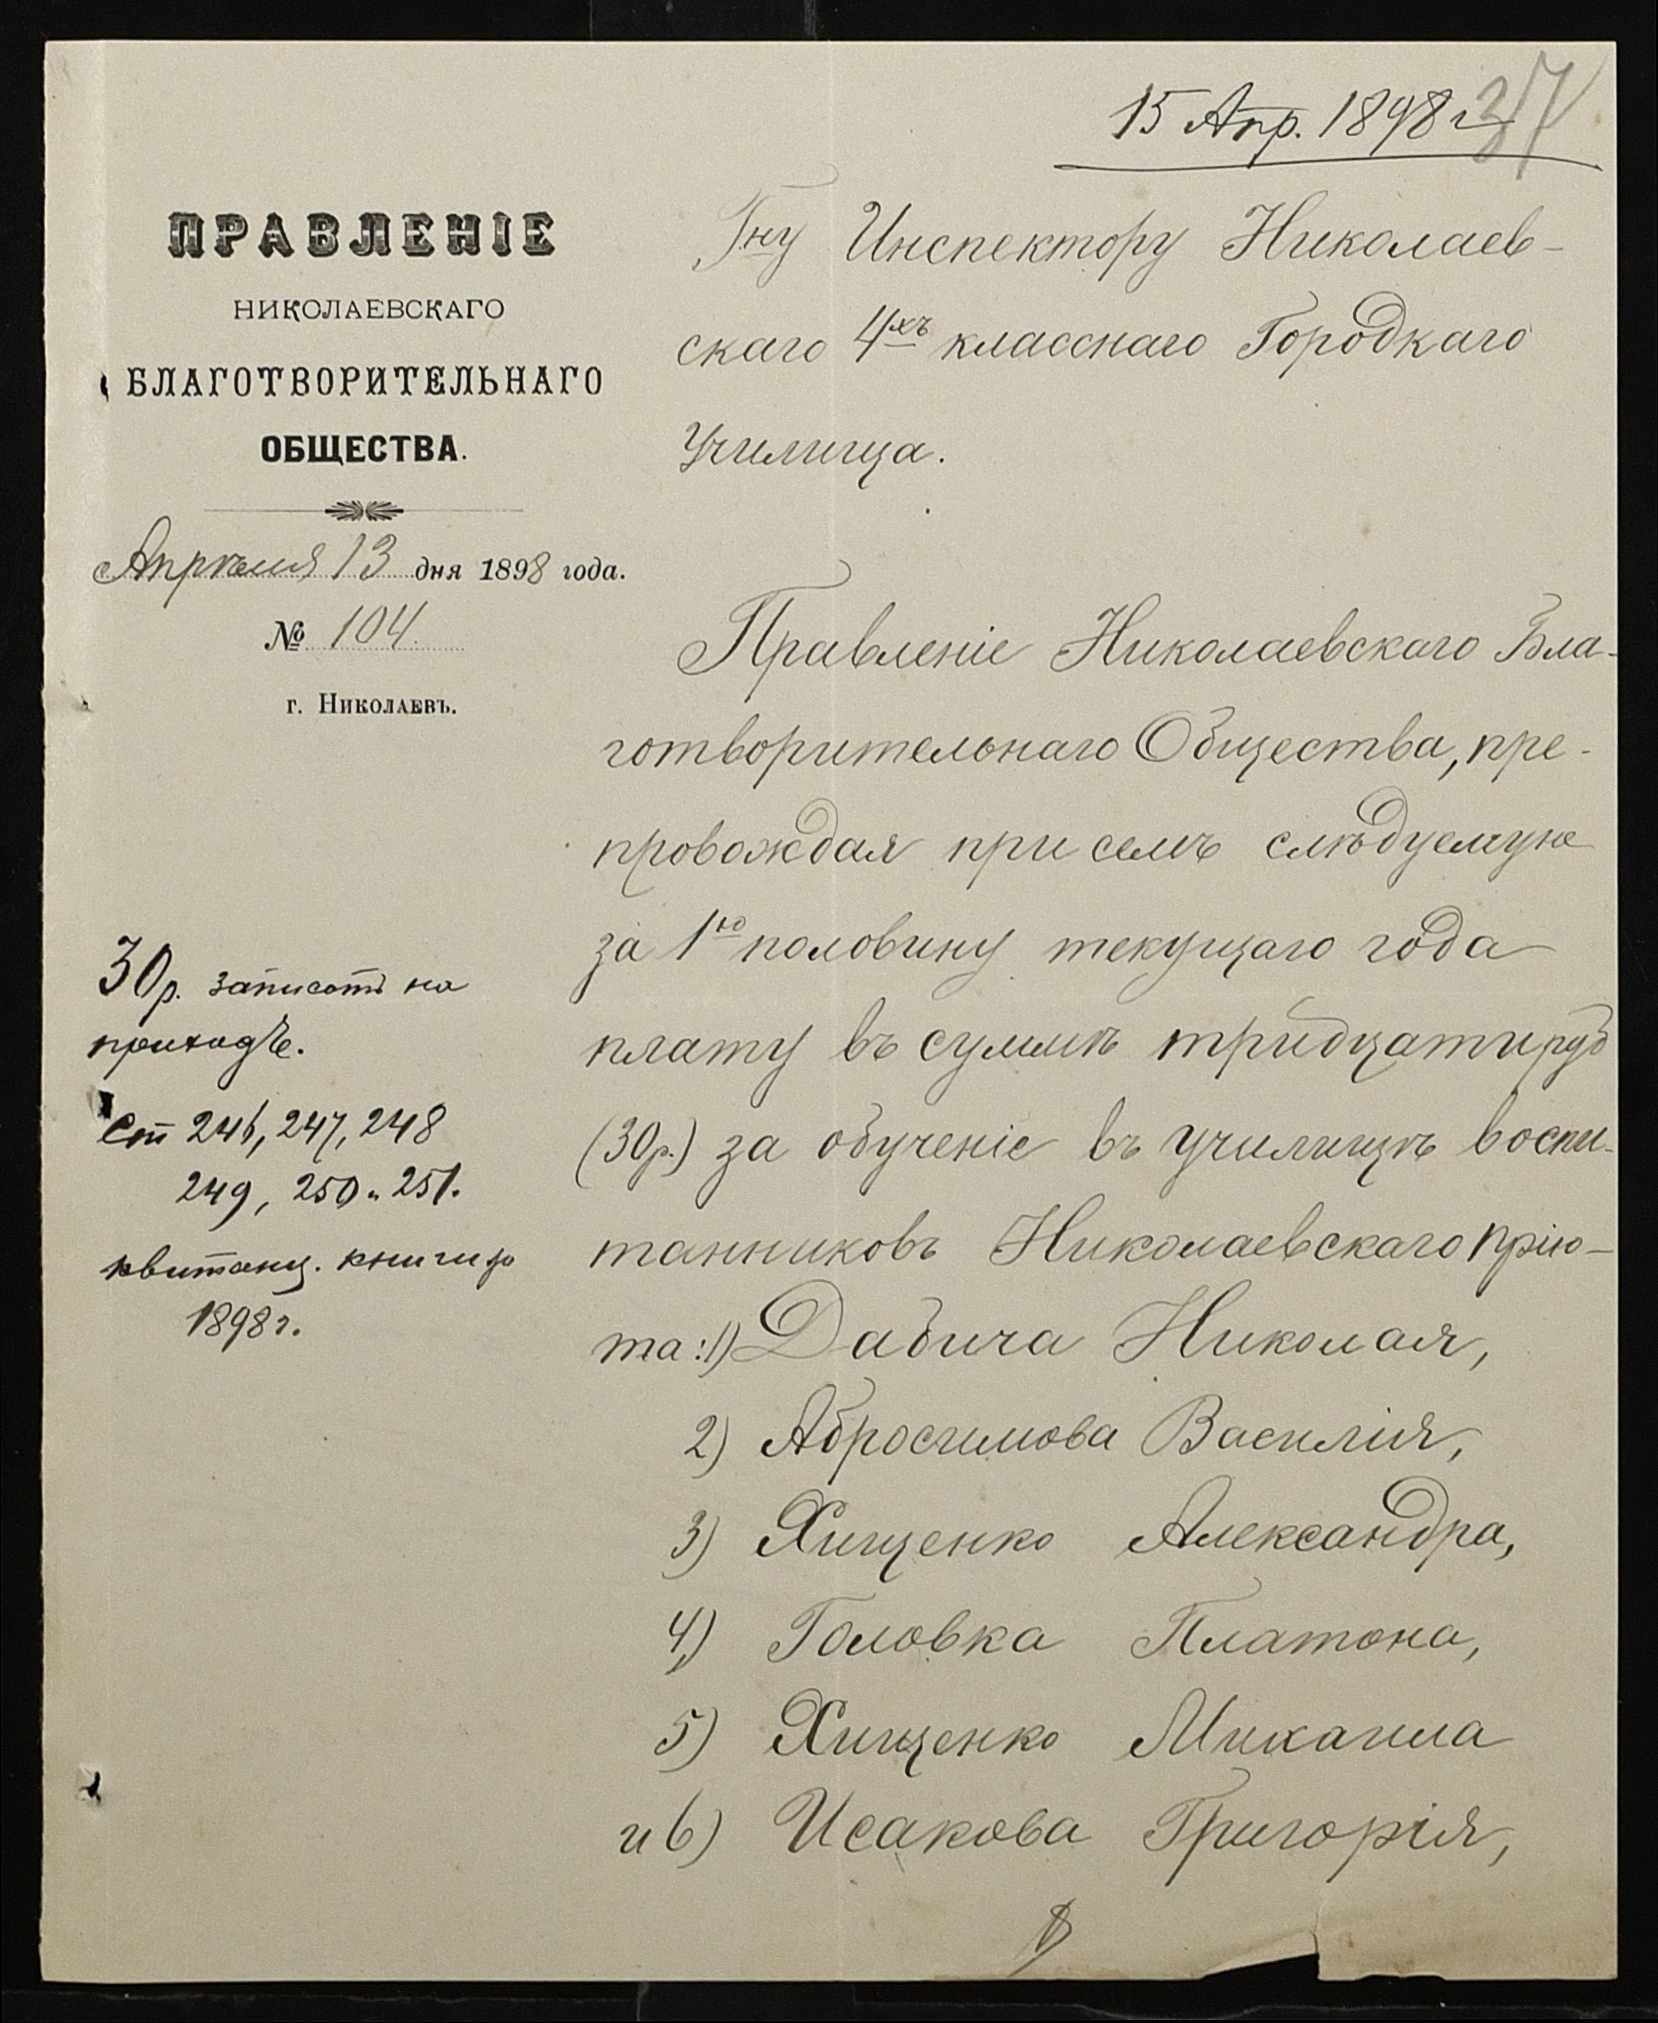 15 Апр. 1898 г.
37
ПРАВЛЕНІЕ
НИКОЛАЕВСКАГО
БЛАГОТВОРИТЕЛЬНАГО
ОБЩЕСТВА.
Апрѣля 13 дня 1898 года.
№ 104.
г. Николаевъ.
Гну Инспектору Николаев-
скаго 4хъ класснаго Городкаго
Училища.
Правленіе Николаевскаго Бла-
готворительнаго Общества, пре-
провождая при семъ слѣдуемую
за 1ю половину текущаго года
плату въ суммѣ тридцати руб
(30р.) за обученіе въ училищѣ воспи-
танниковъ Николаевскаго Прію-
та: 1) Дабича Николая,
2) Абросимова Василія,
3) Хищенко Александра,
4) Головка Платона,
5) Хищенко Михаила
и 6) Исакова Григорія,
30р. записать на
приходъ.
Ст 246, 247, 248
249, 250 и 251.
квитанц. книги за
1898 г.